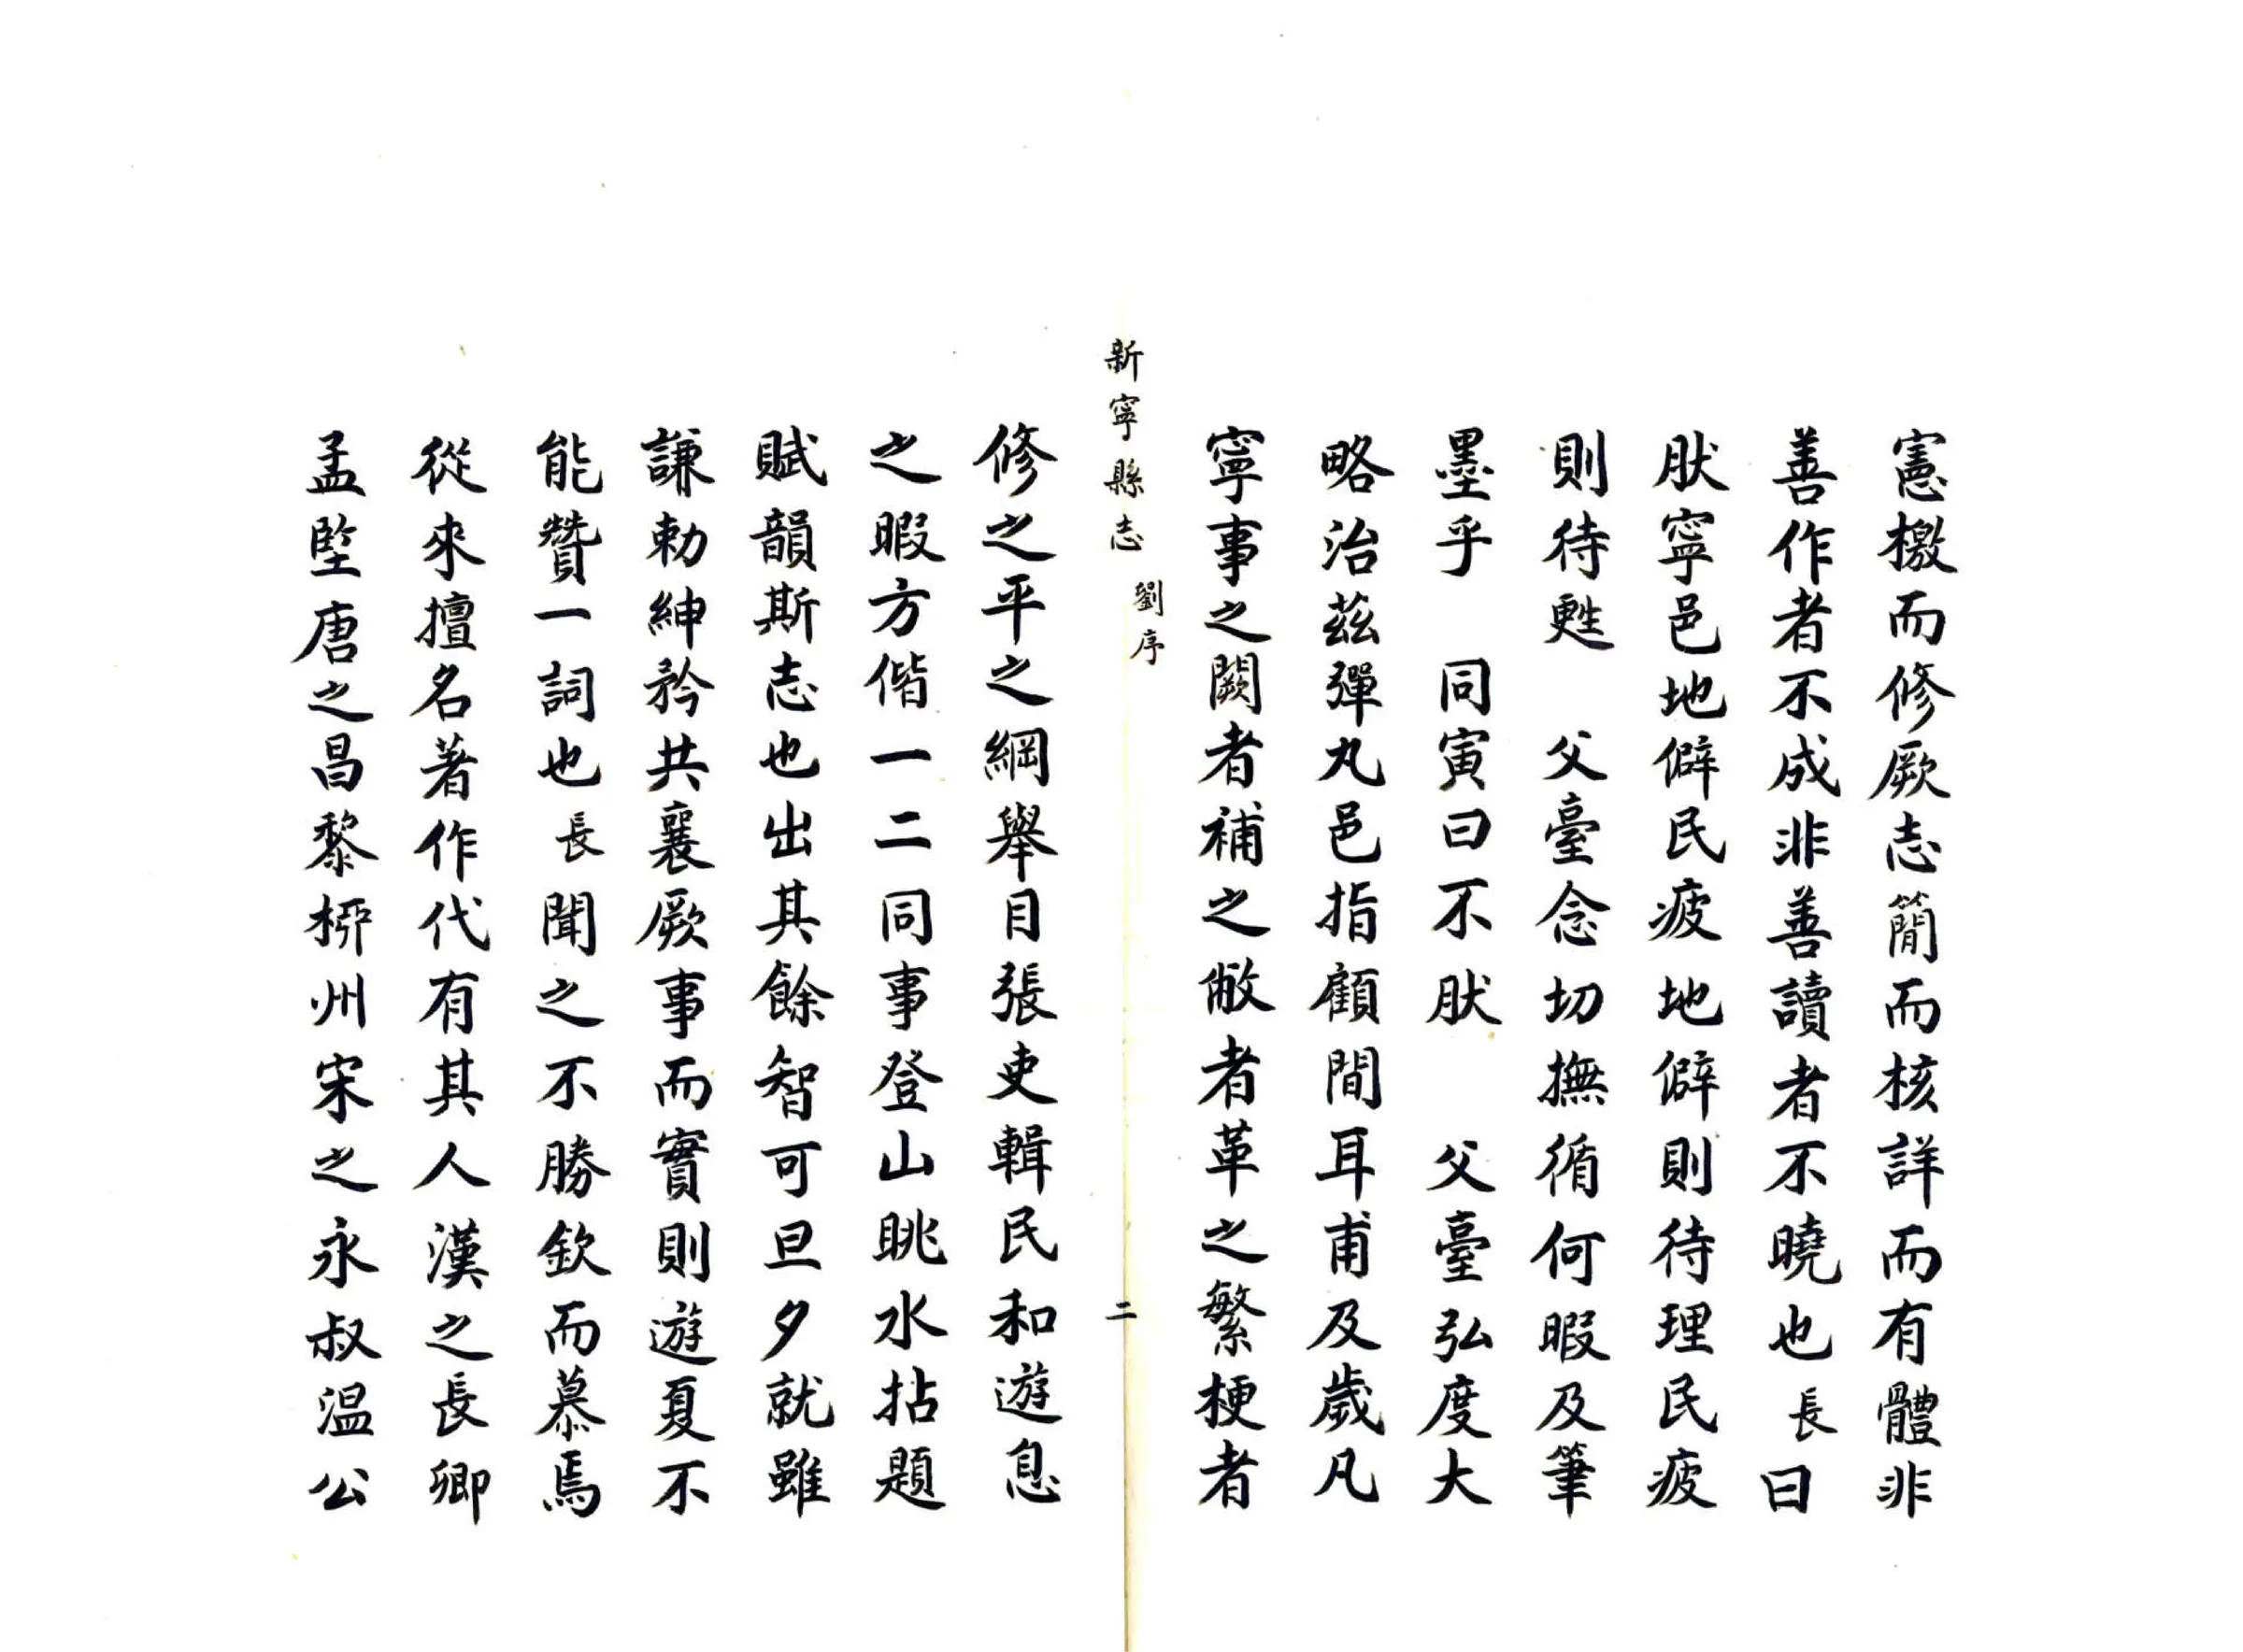 憲檄而修厥志簡而核詳而有體非
善作者不成非善讀者不曉也長曰
肰寧邑地僻民疲地僻則待理民疲
則待甦　父臺念切撫循何暇及筆
墨乎　同寅曰不肰　父臺弘度大
略治茲彈丸邑指顧間耳甫及歲凡
寧事之闕者補之敝者革之繁梗者
新寧縣志　劉序　二
修之平之綱舉目張吏輯民和遊息
之暇方偕一二同事登山眺水拈題
賦韻斯志也出其餘智可旦夕就雖
謙勅紳矜共襄厥事而實則遊夏不
能贊一詞也長聞之不勝欽而慕焉
從來擅名著作代有其人漢之長卿
孟堅唐之昌黎桺州宋之永叔溫公